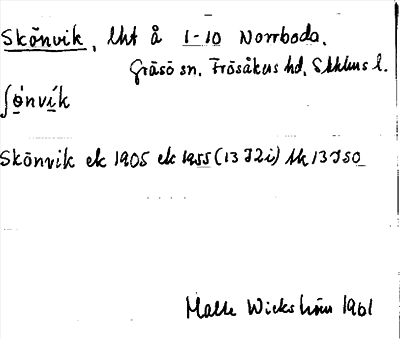 Skönvik, lht å 1-10 Norrboda.
Gräsö sn. Frösåkers hd, Sthlms l.
ʃø̀nvík
Skönvik ek 1905 ek 1955 (13 I2i) tk 13 I SO
Malte Wickström 1961